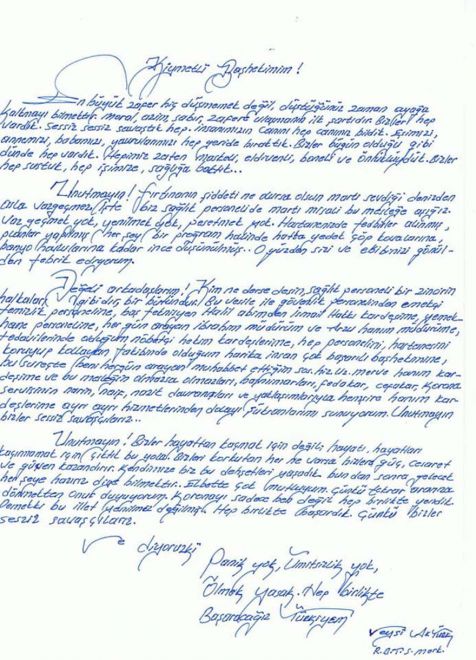 Kıymetli Başhekimim!
En büyük zafer hiç düşmemek değil, düştüğünüz zaman ayağa
kalkmayı bilmektir. moral, azim, sabır, zafere ulaşmanın ilk şartıdır. Bizler hep
vardık. Sessiz sessiz savaştık hep. insanımızın canını hep canımız bildik. Eşimizi,
annemizi, babamızı, yavrularımızı hep geride bıraktık. Bizler bugün olduğu gibi
dünde hep vardık. Hepimiz zaten maskeli, eldivenli, boneli ve önlüklüydük. Bizler
hep sustuk, hep işimize, sağlığa baktık...
Unutmayın! fırtınanın şiddeti ne dursa olsun martı sevdiği denizden
asla vazgeçmez. İşte biz sağlık personelide martı misali bu mesleğe aşığız.
Vaz geçmek yok, yenilmek yok, pes etmek yok. Hastanemizde tedbirler alınmış,
planlar yapılmış her şey bir program halinde hatta yedek çöp kovalarına,
banyo havlularına kadar ince düşünülmüş.. O yüzden sizi ve ekibinizi gönül-
den tebrik ediyorum.
Değerli arkadaşlarım! Kim ne derse desin, sağlık personeli bir zincirin
halkaları gibidir, bir bütündür. Bu vesile ile güvenlik personelinden emekçi
temizlik personeline, baş teknisyen Halil abimden İsmail Hakkı kardeşime, yemek-
hane personeline, her gün arayan İbrahim müdürüm ve Arzu hanım müdürüme,
tedavilerinde olduğum nöbetçi hekim kardeşlerime, hep personelini, hastanemi
koruyup kollayan takibinde olduğum harika insan çok başarılı başhekimime,
bu süreçte beni hergün arayan muhabbet ettiğim sor. hiz. Uz. merve hanım kar-
deşime ve bu mesleğin olmazsa olmazları, başmimarları, fedakar, cefakar, Korona
servisinin narin, naif, nazik davranışları ve yaklaşımlarıyla hemşire hanım kar-
deşlerime ayrı ayrı hizmetlerinden dolayı şükranlarımı sunuyorum. Unutmayın
bizler sessiz savaşçılarız..
Unutmayın! Bizler hayattan kaçmak için değil, hayatı, hayatları
kaçırmamak için çıktık bu yola. Bizleri korkutan her ne varsa bizlere güç, cesaret
ve güven kazandırır. Kendimize biz bu dehşetleri yaşadık bundan sonra gelecek
her şeye hazırız diye bilmektir. Elbette çok mutluyum. Çünkü tekrar aranıza
dönmekten onur duyuyorum. Koronayı sadece ben değil hep birlikte yendik.
Demekki bu illet yenilmez değilmiş. Hep birlikte başardık. Çünkü bizler
sessiz savaşçılarız.
Ve diyoruzki
Panik yok, Ümitsizlik yok,
Ölmek yasak. Hep birlikte
Başaracağız Türkiyem
Veysi Aktürk